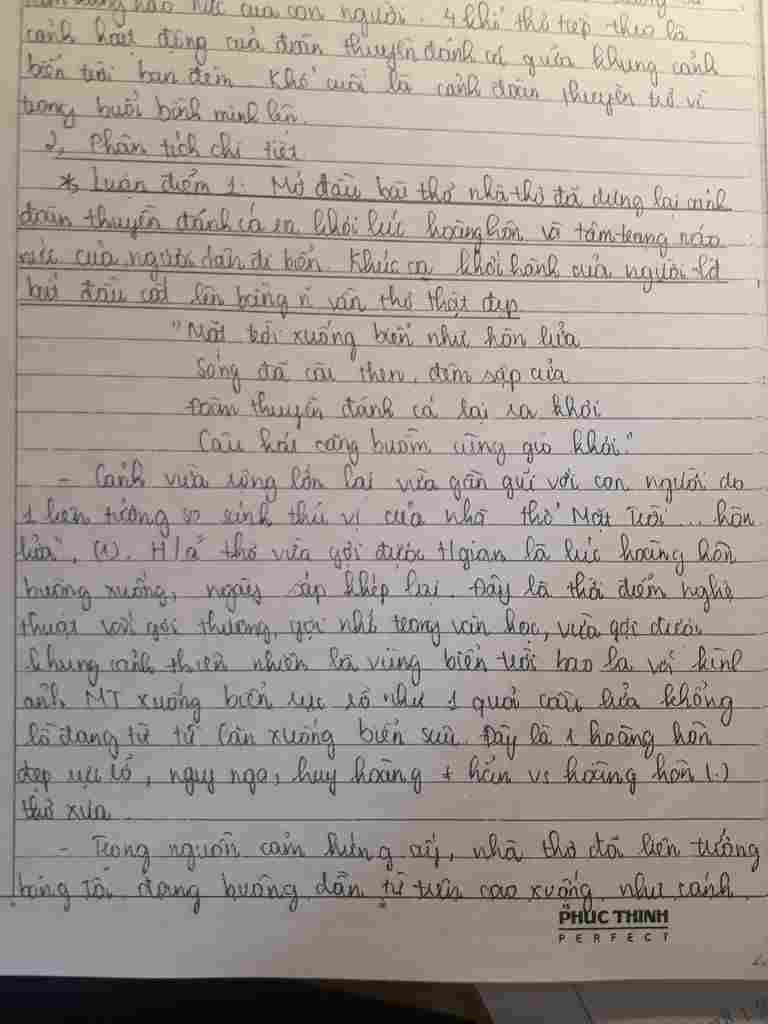 nao nức của con người. 4 khổ thơ tiếp theo là
cảnh hoạt động của đoàn thuyền đánh cá giữa khung cảnh
biển trời ban đêm. Khổ cuối là cảnh đoàn thuyền trở về
trong buổi bình minh lên.
2, Phân tích chi tiết
* Luận điểm 1. Mở đầu bài thơ nhà thơ đã dựng lại cảnh
đoàn thuyền đánh cá ra khơi lúc hoàng hôn và tâm trạng náo
nức của người dân đi biển. Khúc ca khởi hành của người lđ
bắt đầu cất lên bằng n~ vần thơ thật đẹp
"Mặt trời xuống biển như hòn lửa
Sóng đã cài then, đêm sập cửa
Đoàn thuyền đánh cá lại ra khơi
Câu hát căng buồm cùng gió khơi."
- Cảnh vừa rộng lớn lại vừa gần gũi với con người do
1 liên tưởng so sánh thú vị của nhà thơ "Mặt trời... hòn
lửa", (1). H/ả thơ vừa gợi được t/gian là lúc hoàng hôn
buông xuống, ngày sắp khép lại. Đây là thời điểm nghệ
thuật vời gợi thương, gợi nhớ trong văn học, vừa gợi được
khung cảnh thiên nhiên là vùng biển trời bao la với hình
ảnh MT xuống biển rực rỡ như 1 quả cầu lửa khổng
lồ đang từ từ lặn xuống biển sâu. Đây là 1 hoàng hôn
đẹp rực rỡ, nguy nga, huy hoàng ≠ hẳn vs hoàng hôn (.)
thơ xưa
- Trong nguồn cảm hứng ấy, nhà thơ đã liên tưởng
bóng tối đang buông dần từ trên cao xuống như cánh
PHUC THINH
PERFECT